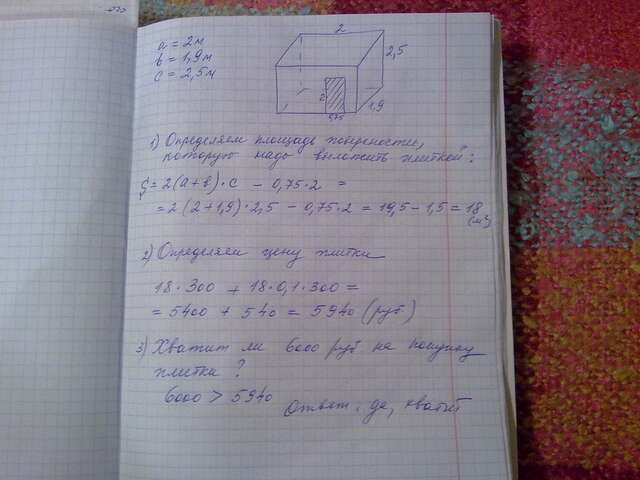 a = 2м
в = 1,9м
c = 2,5м
2
2,5
2
1,9
0,75
1) Определяем площадь поверхности,
которую надо выложить плиткой:
S = 2(a+в)·c - 0,75·2 =
= 2(2+1,9)·2,5 - 0,75·2 = 19,5 - 1,5 = 18
(м²)
2) Определяем цену плитки
18·300 + 18·0,1·300 =
= 5400 + 540 = 5940 (руб)
3) Хватит ли 6000 руб на покупку
плитки?
6000 > 5940
Ответ: да, хватит